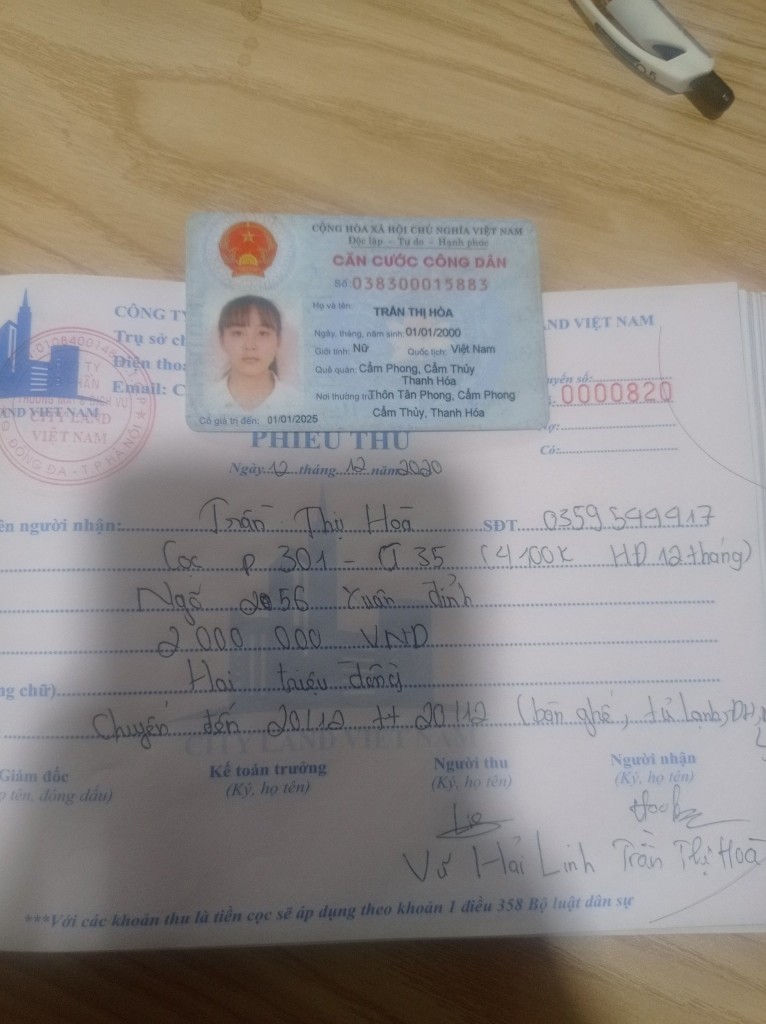 CỘNG HÒA XÃ HỘI CHỦ NGHĨA VIỆT NAM
Độc lập - Tự do - Hạnh phúc
CĂN CƯỚC CÔNG DÂN
Số: 038300015883
Họ và tên:
TRẦN THỊ HÒA
Ngày, tháng, năm sinh: 01/01/2000
Giới tính: Nữ Quốc tịch: Việt Nam
Quê quán: Cẩm Phong, Cẩm Thủy
Thanh Hóa
Nơi thường trú: Thôn Tân Phong, Cẩm Phong
Cẩm Thủy, Thanh Hóa
Có giá trị đến: 01/01/2025
CÔNG TY
AND VIỆT NAM
Trụ sở
Điện tho
Email: C
AND VIET NAM
CITY LAND
VIỆT NAM
ĐỐNG ĐA - T.P HÀ NỘI
uyển số:
0000820
Nợ:
Có:
PHIẾU THU
Ngày 12 tháng 12 năm 2020
ên người nhận: Trần Thị Hoà SĐT 0359544417
Cọc P 301 - (4100k HĐ 12 tháng)
Ngõ 56 Xuân đỉnh
2 000 000 VNĐ
ng chữ) Hai triệu đồng
Chuyển đến 20/12 tt 20/12 (bàn ghế, tủ lạnh, ĐH,
CITY LAND VIET NAM
Giám đốc Kế toán trưởng Người thu Người nhận
ọ tên, đóng dấu) (Ký, họ tên) (Ký, họ tên) (Ký, họ tên)
Vũ Hải Linh Trần Thị Hoà
***Với các khoản thu là tiền cọc sẽ áp dụng theo khoản 1 điều 358 Bộ luật dân sự